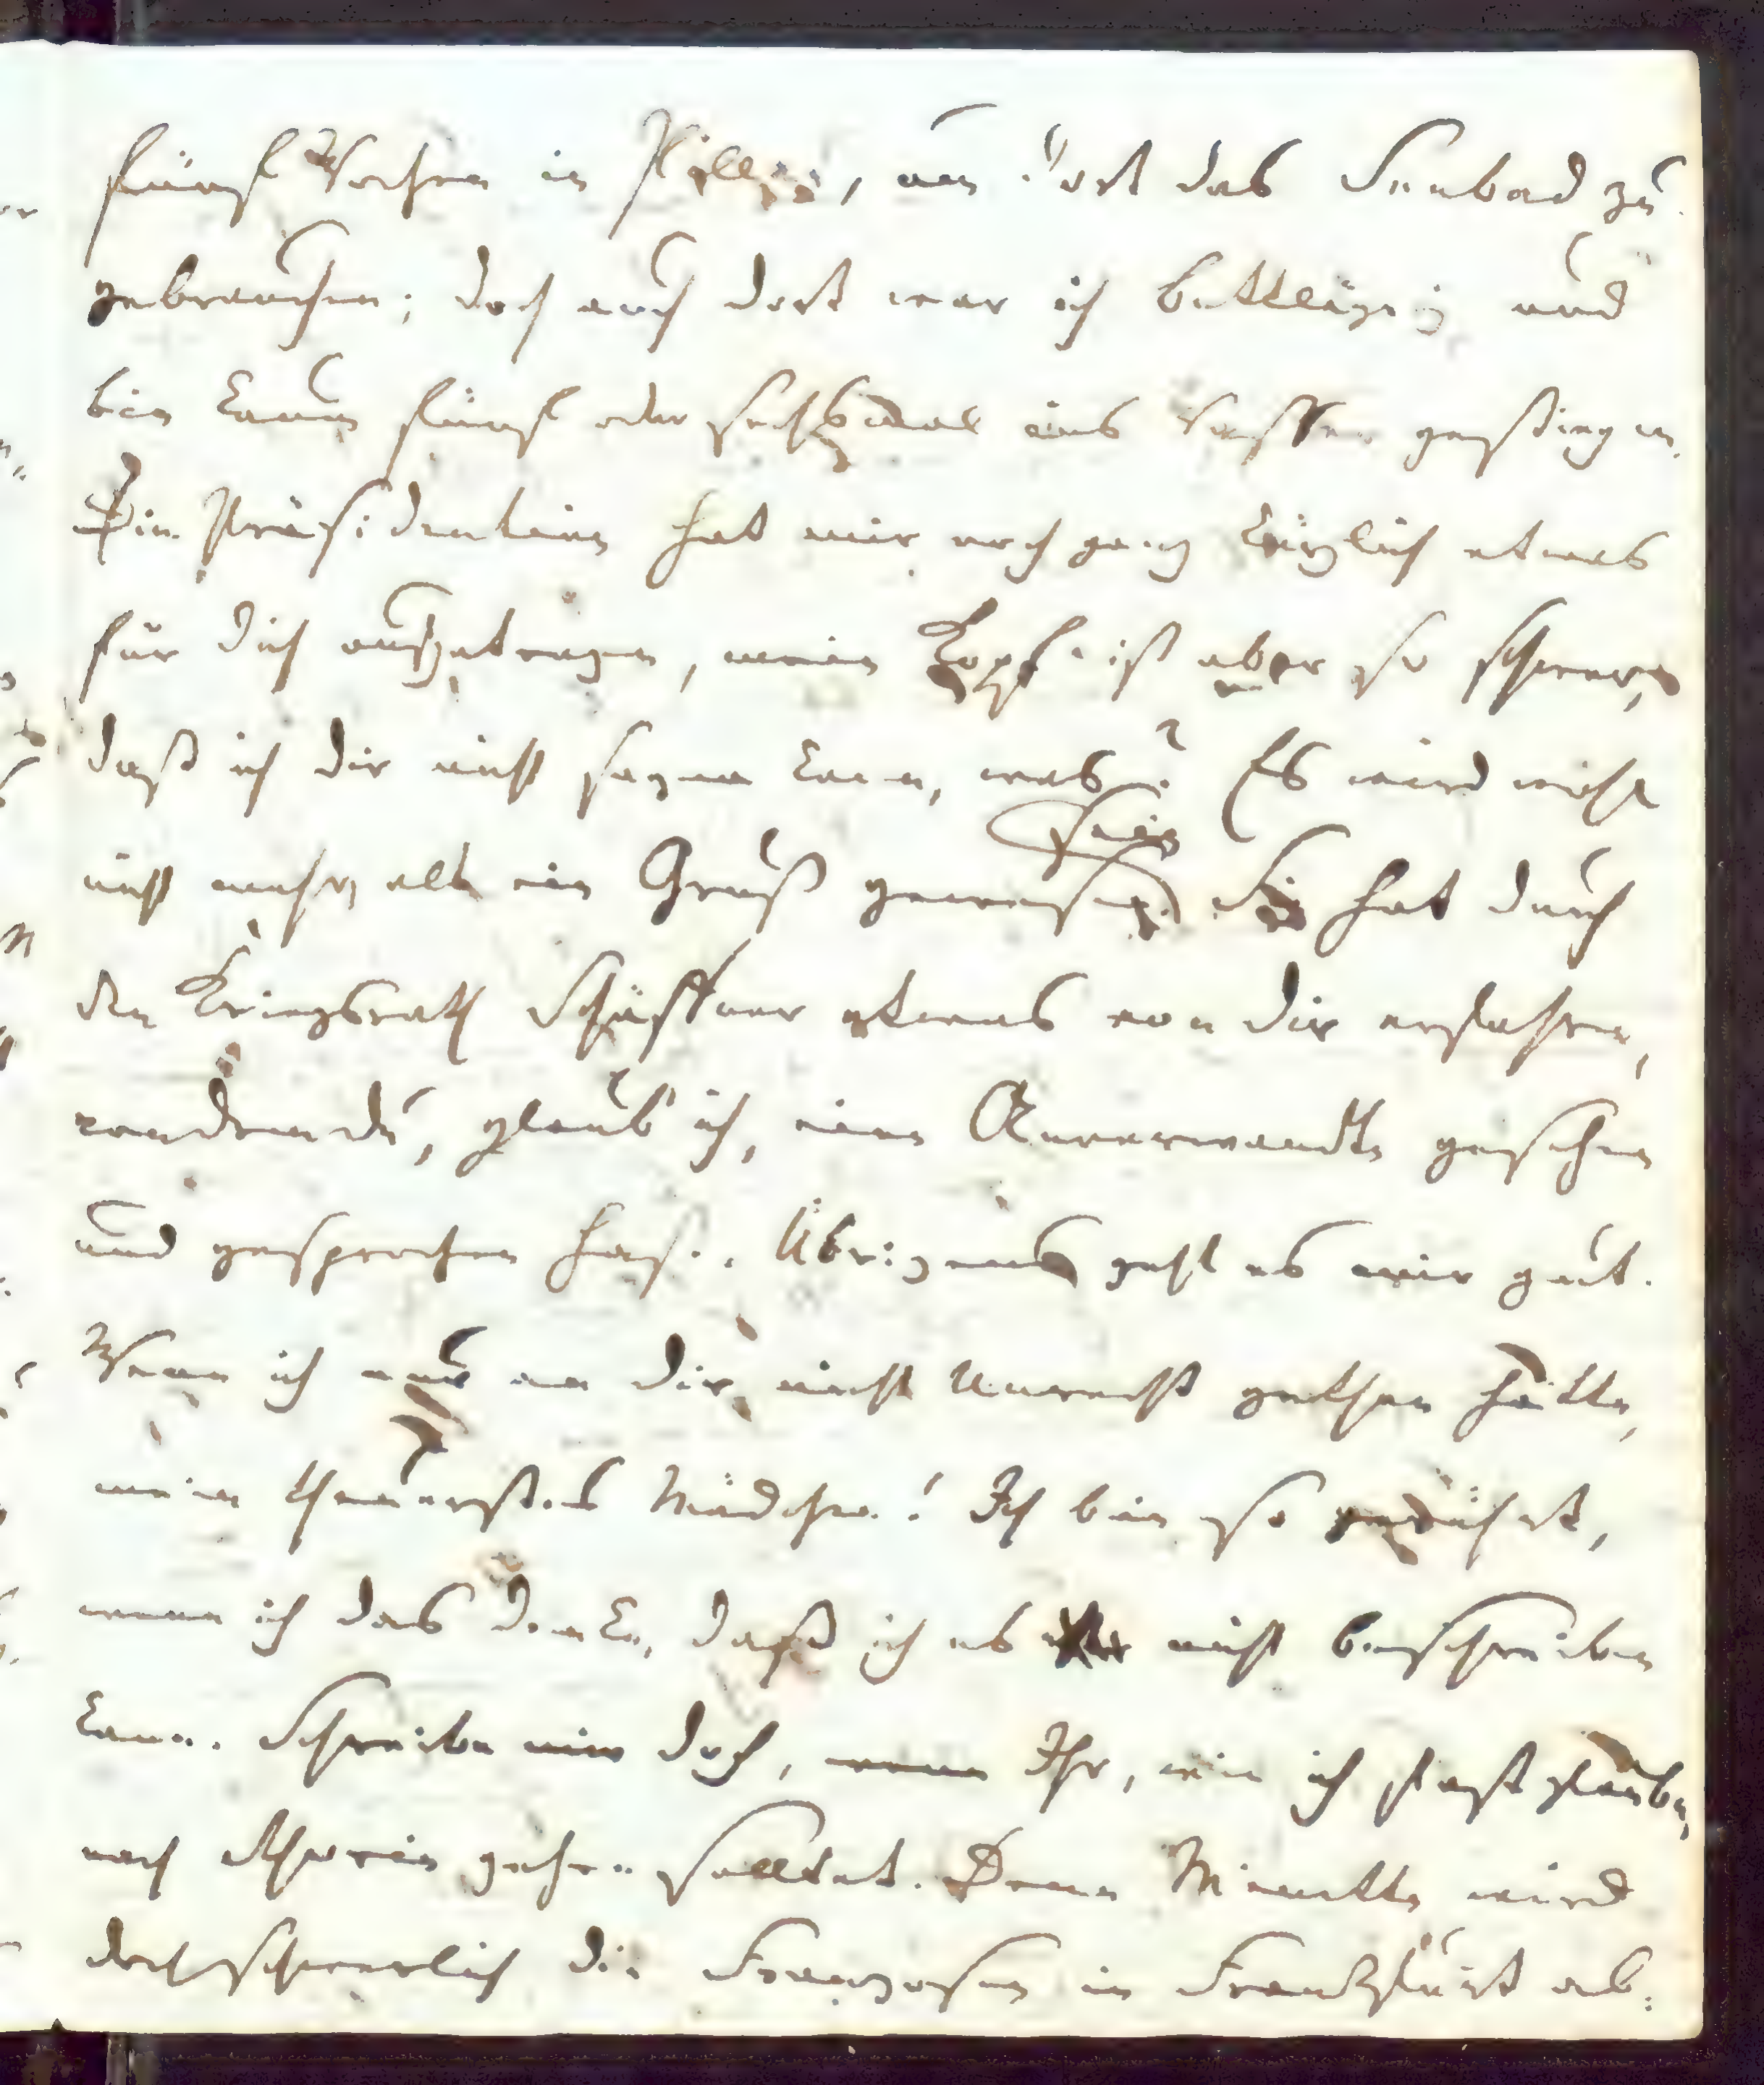 fünf Wochen in Pillau, um dort das Seebad zu
gebrauchen; doch auch dort war ich bettlägrig und
bin kaum fünf oder sechsmal ins Wasser gestiegen.
Die Präsidentinn hat mir noch ganz kürzlich etwas
für dich aufgetragen, mein Kopf ist aber so schwach,
daß ich dir nicht sagen kann, was? Es wird wohl
nicht mehr, als ein Gruß gewesen sein. Sie hat durch
den Kriegsrath Schäffner etwas von dir erfahren,
von dem du, glaub' ich, eine Anverwandte gesehen
und gesprochen hast. Übrigens geht es mir gut.
Wenn ich nur an dir nicht Unrecht gethan hätte,
mein theuerstes Mädchen! Ich bin so gerührt,
wenn ich das denke, daß ich es nicht beschreiben
kann. Schreibe mir doch, wenn Ihr, wie ich fast glaube,
nach Schorin gehen solltet. Denn Minette wird
doch schwerlich die Franzosen in Frankfurt ab: